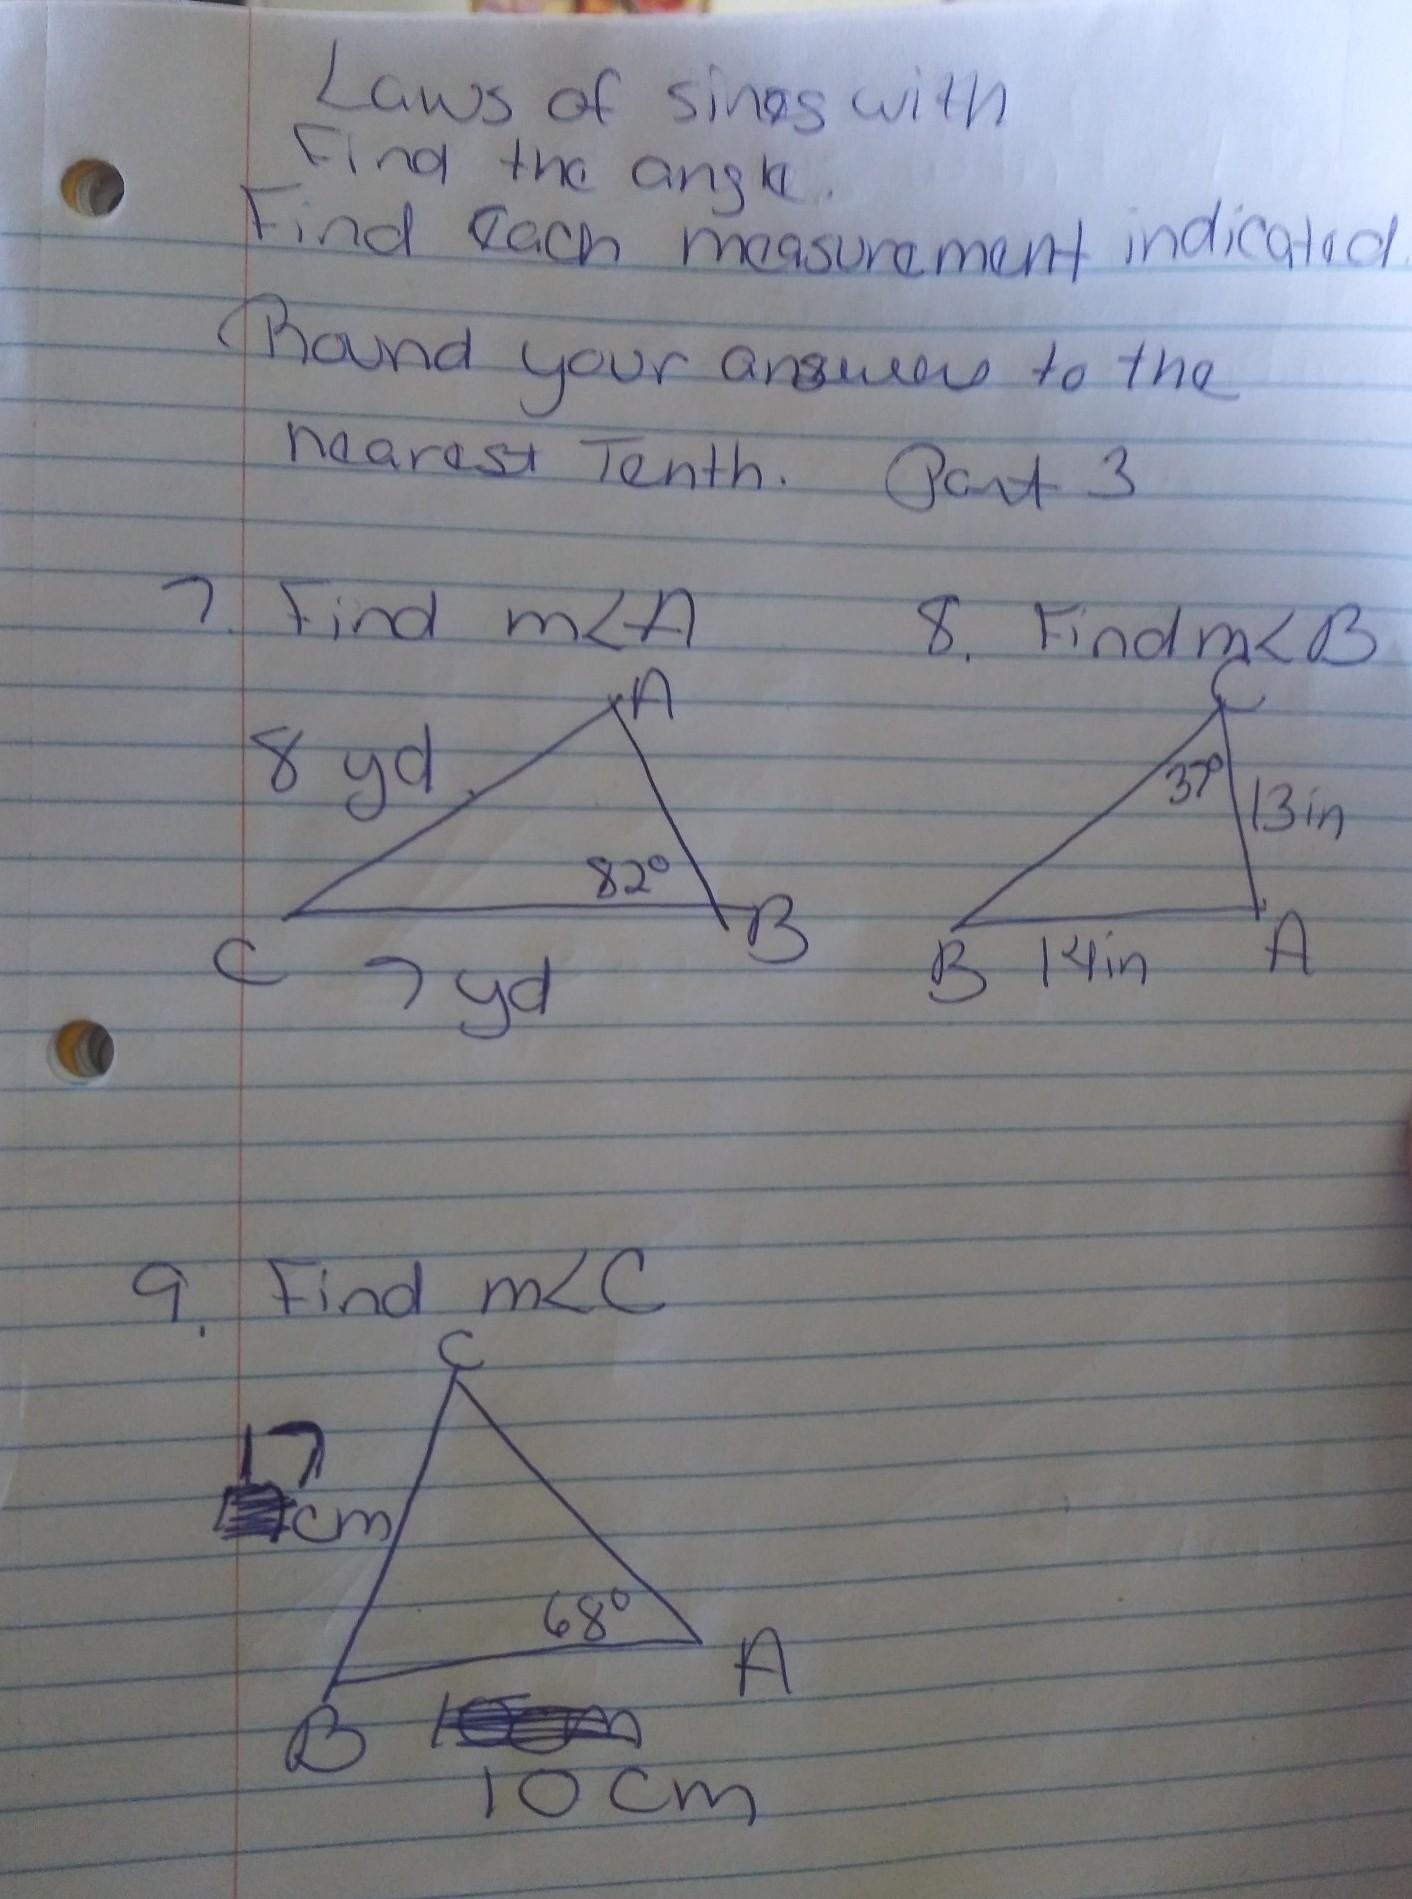 Laws of sines with
Find the angle.
Find Each measurement indicated.
Round your answers to the
nearest Tenth. Part 3
7. Find m<A
8. Find m<B
A
8 yd
82°
C
B
7 yd
C
37°
13in
B
14in
A
9. Find m<C
C
17
cm
68°
A
B
10 cm